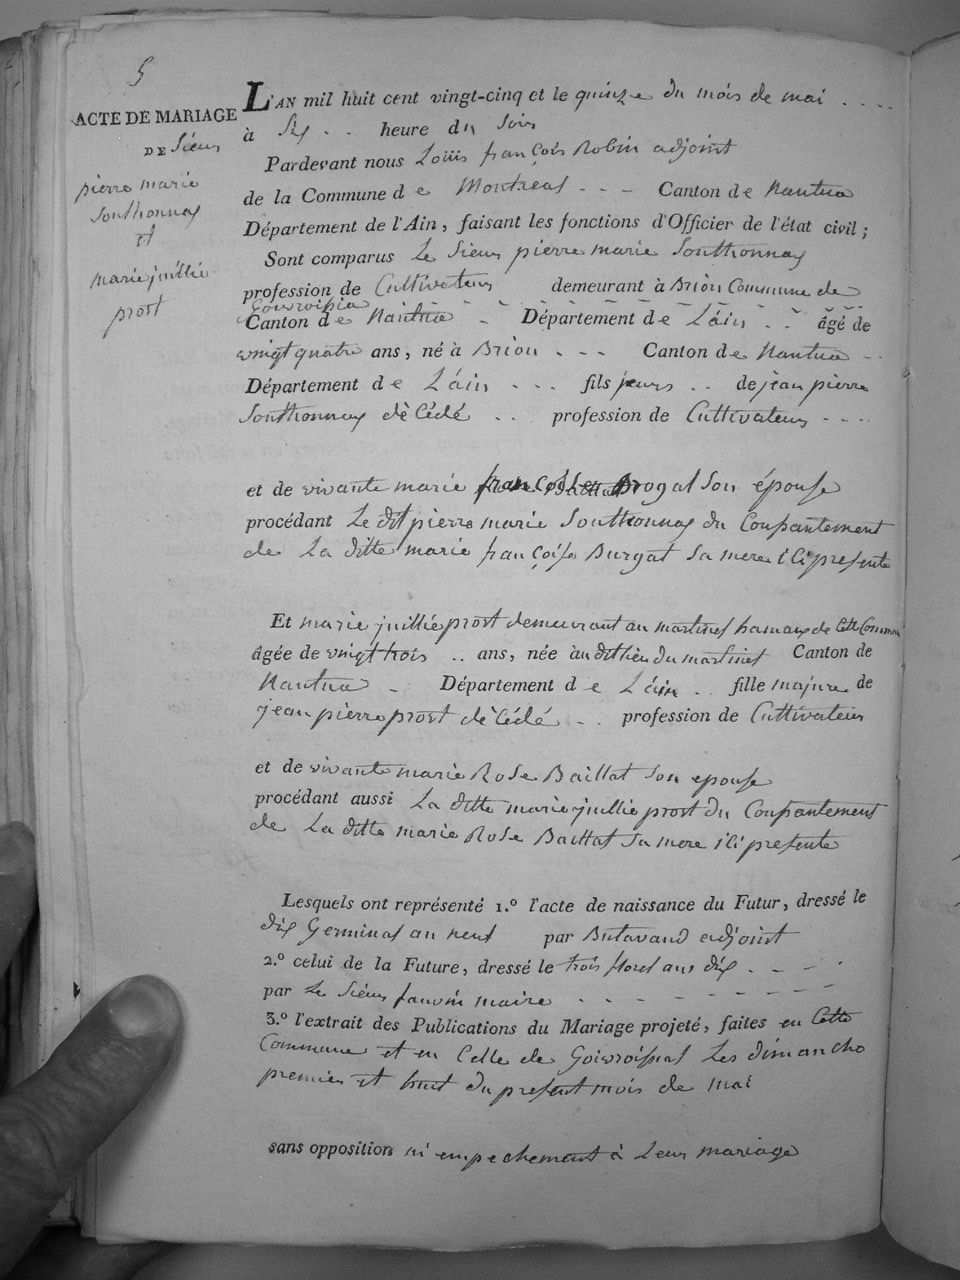 5
ACTE DE MARIAGE
DE Sieur
pierre marie
Southonnax
et
marie juillie
prost
L'AN mil huit cent vingt-cinq et le quinze du mois de mai ....
à Six .. heure du Soir
Pardevant nous Louis françois Robin adjoint
de la Commune de Montreal - - - Canton de Nantua
Département de l'Ain, faisant les fonctions d'Officier de l'état civil;
Sont comparus Le Sieur pierre marie Southonnax
profession de Cultivateur demeurant à Brion Commune de
Canton de Nantua - Département de L'áin .. âgé de
vingt quatre ans, né à Brion - - - Canton de Nantua ..
Département de L'áin - - - fils jeurs .. de jean pierre
Southonnax dècédé .. profession de Cultivateur - - -
et de vivante marie françoise Brogat Son épouse
procédant Le dit pierre marie Southonnax du Consantement
de La ditte marie françoise Burgat Sa mere ici presente
Et marie juillie prost demeurant au martinet hamaux de Cette Commune
âgée de vingt trois .. ans, née àu dit lieu du martinet Canton de
Nantua - Département de L'áin .. fille majure de
jean pierre prost dècédé .. profession de Cultivateur
et de vivante marie Rose Baillat Son epouse
procédant aussi La ditte marie juillie prost du Consantement
de La ditte marie Rose Baillat Sa mere ici presente
Lesquels ont représenté 1.º l'acte de naissance du Futur, dressé le
dix Germinal an neuf par Butavand adjoint
2.º celui de la Future, dressé le trois floral ans dix - - - -
par Le Sieur maire - - - - - - - -
3.º l'extrait des Publications du Mariage projeté, faites en Cette
Commune et en Celle de Les dimanche
premier et huit du present mois de mai
sans opposition ni empechement à Leur mariage